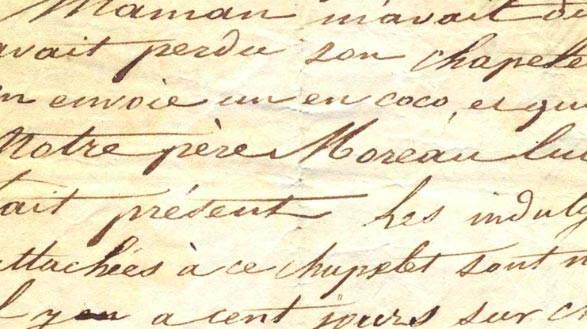 Maman m'avait d
avait perdu son chapele
en envoie un en coco, et qu
Notre père Moreau lui
fait présent Les indulg
attachées à ce chapelet sont
il y en a cent jours sur c